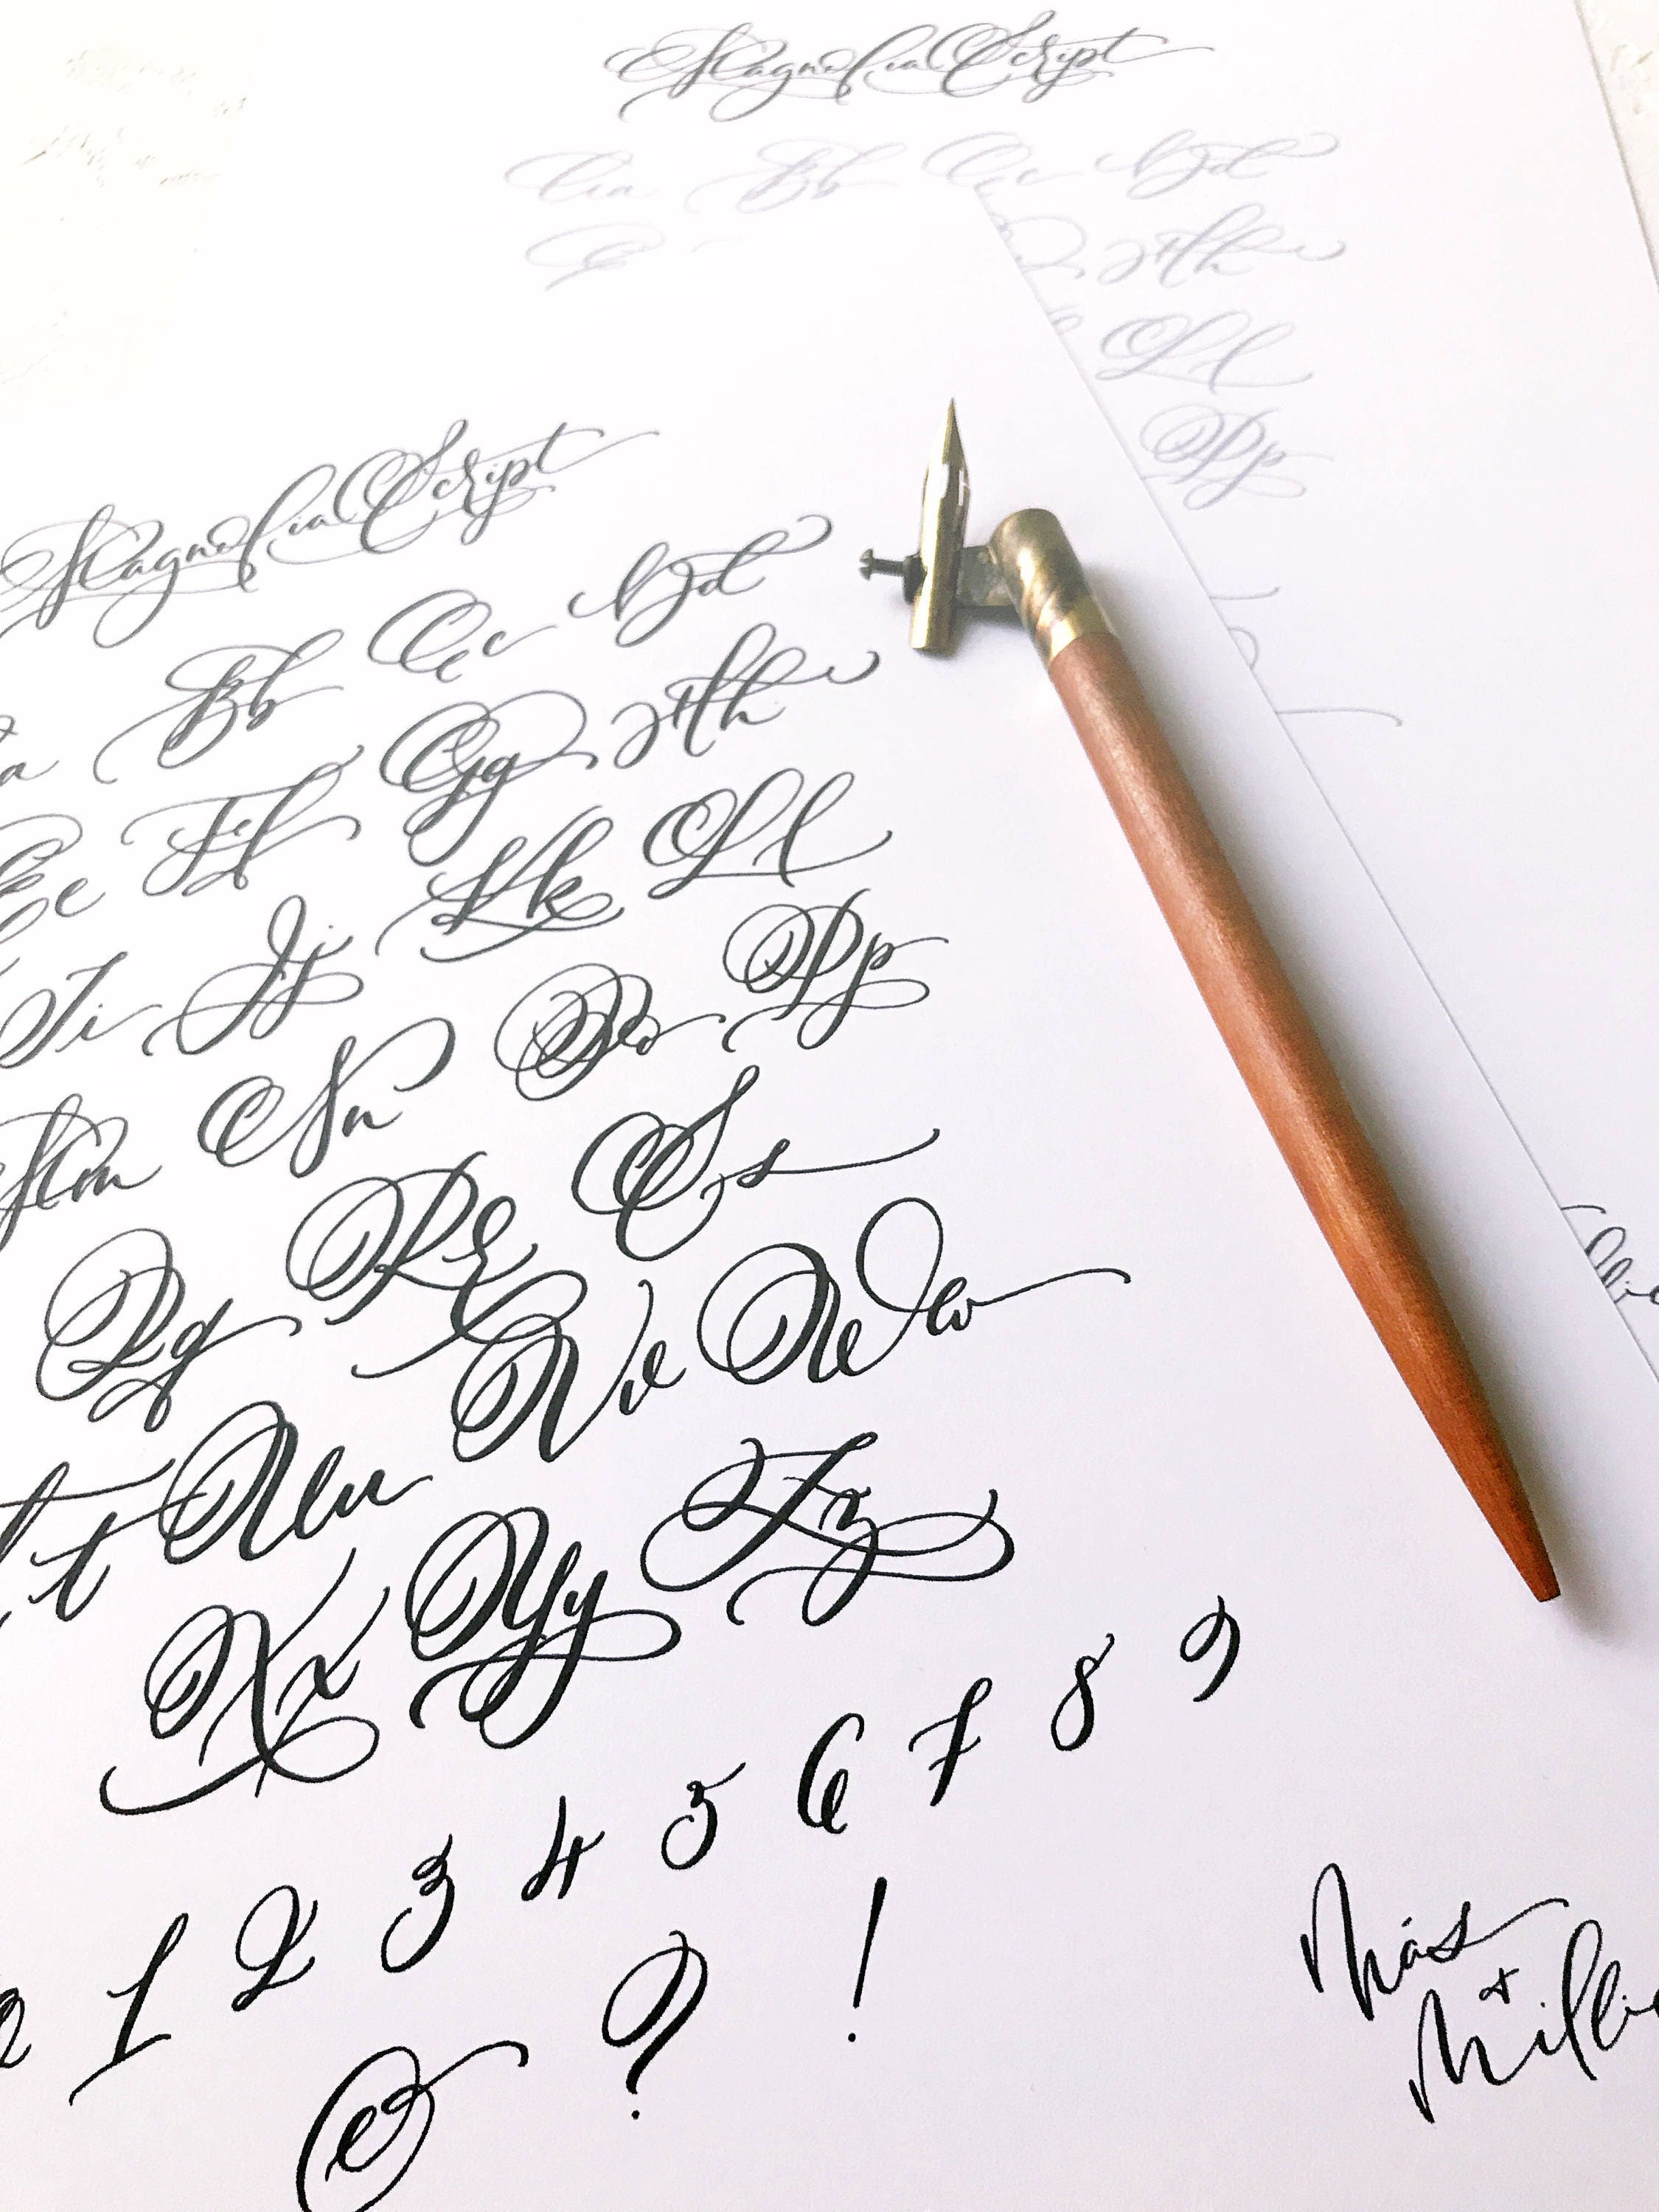 Magnolia Script
Aa Bb Cc Dd
Hh
Ll
Pp
Magnolia Script
a Bb Cc Dd
Ee Ff Gg Hh
Ii Jj Kk Ll
Mm Nn Oo Pp
Qq Rr Ss
t Uu Vv Ww
Xx Yy Zz
1 2 3 4 5 6 7 8 9
& ? !
Más
+
Millie